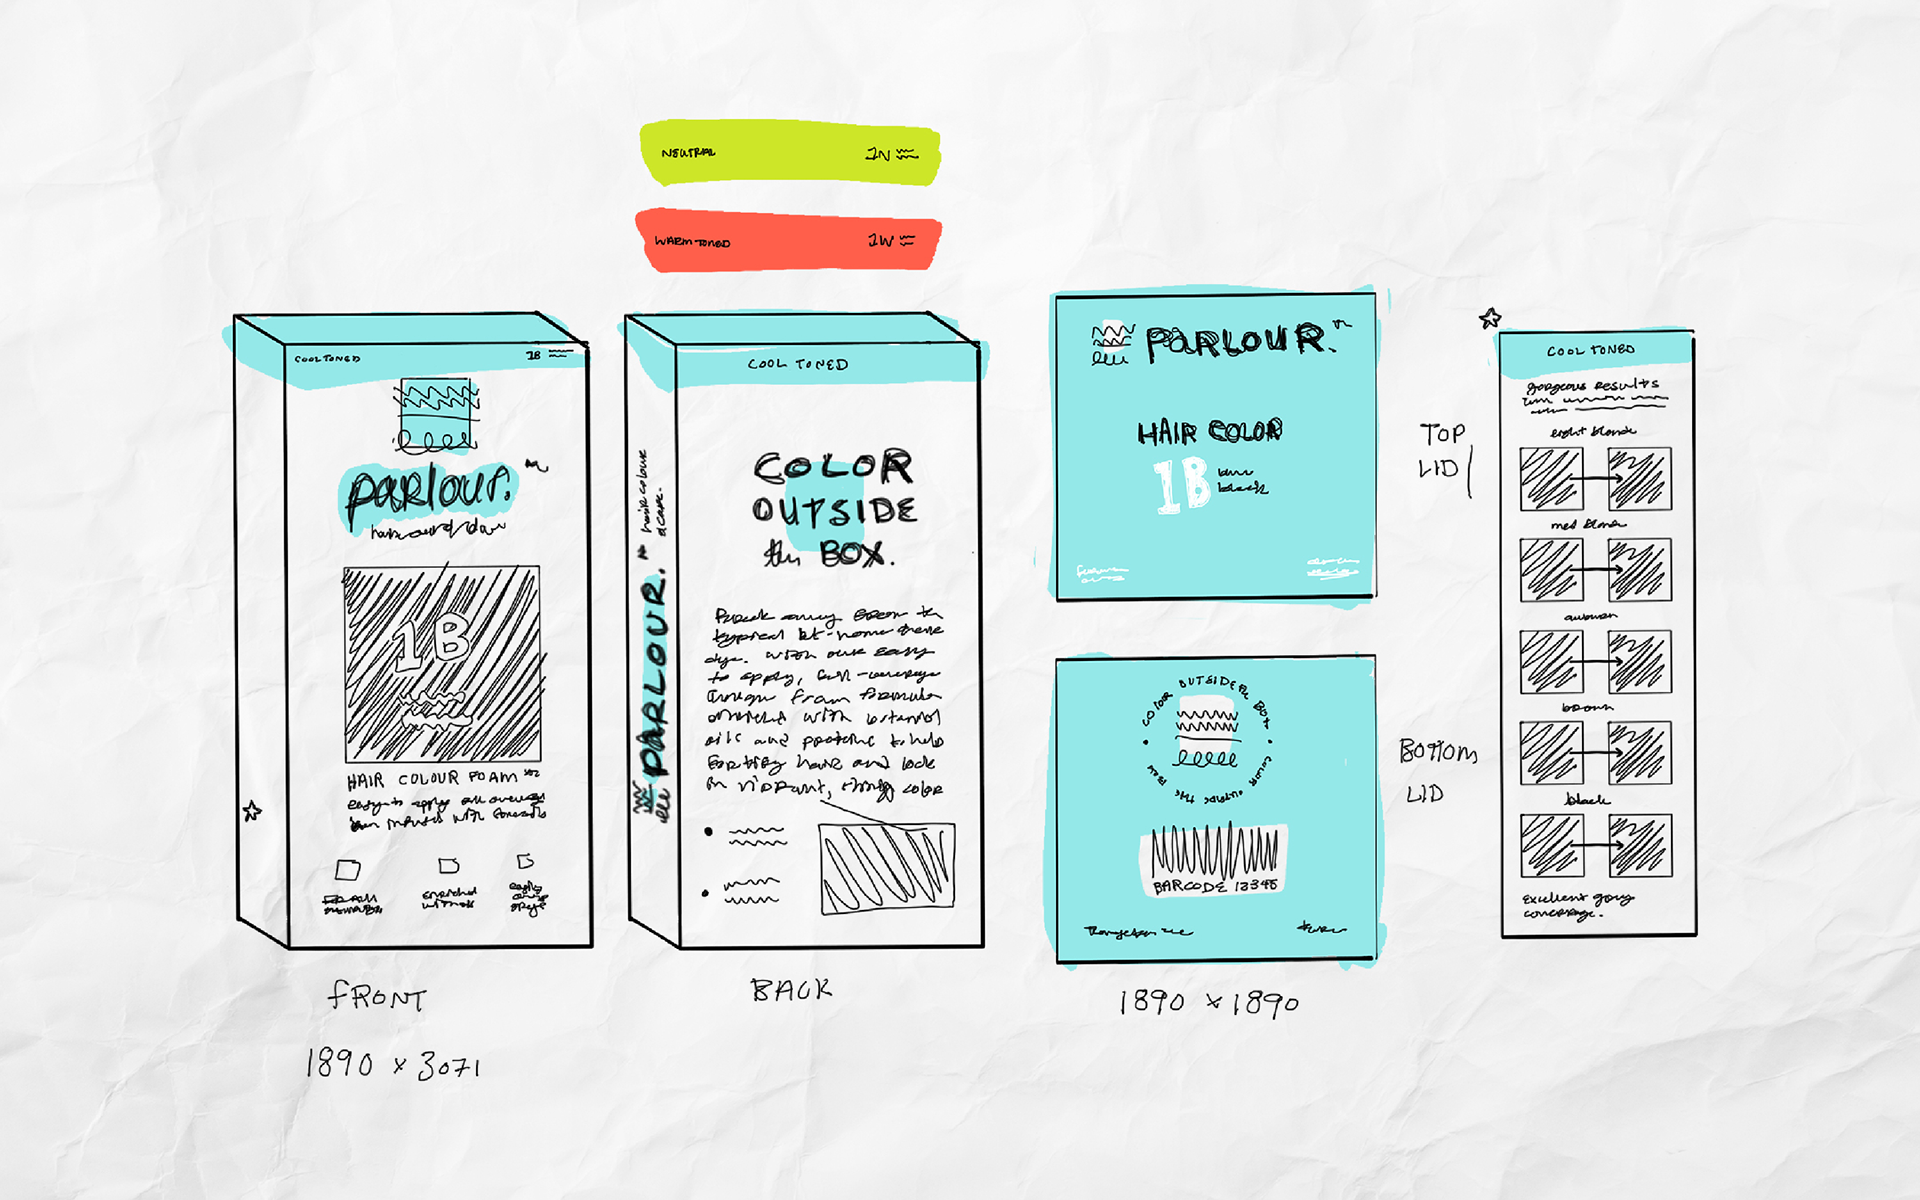 NEUTRAL 1N
WARM TONED 1W
COOL TONED 1B
parlour.
1B
HAIR COLOUR FOAM
easy to apply all over
infused with
enriched
FRONT
1890 x 3071
COOL TONED
COLOR
OUTSIDE
the BOX.
PARLOUR.™ hair colour
Break away from the
typical at-home
dye. With our easy
to apply, full-coverage
foam formula
enriched with botanical
oils and proteins to help
fortify hair and lock
in vibrant, color
BACK
PARLOUR.
HAIR COLOR
1B
black
TOP
LID
COLOR OUTSIDE the BOX • COLOR OUTSIDE THE BOX •
BARCODE 12345
BOTTOM
LID
1890 x 1890
COOL TONED
gorgeous results
light blonde
med blonde
auburn
brown
black
Excellent gray
coverage.